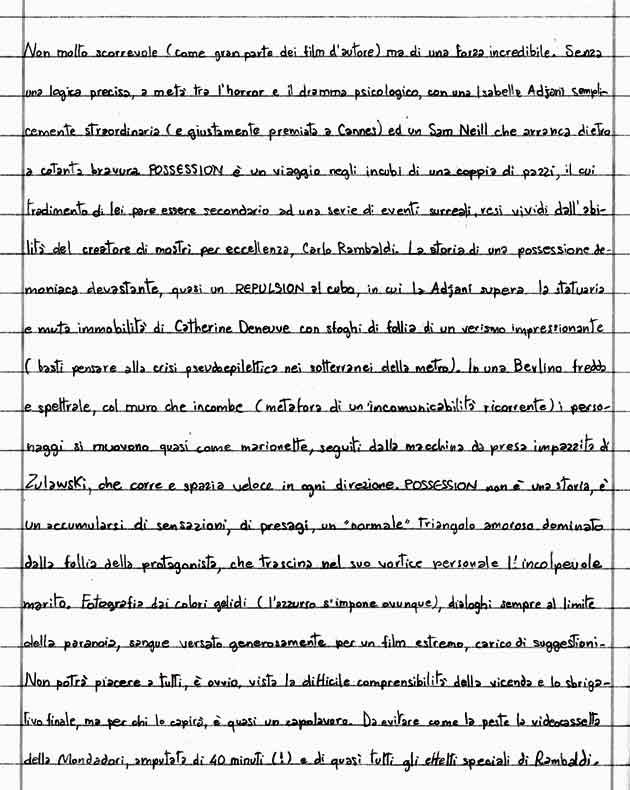 Non molto scorrevole (come gran parte dei film d'autore) ma di una forza incredibile. Senza
una logica precisa, a metà tra l'horror e il dramma psicologico, con una Isabelle Adjani sempli-
cemente straordinaria (e giustamente premiata a Cannes) ed un Sam Neill che arranca dietro
a cotanta bravura POSSESSION è un viaggio negli incubi di una coppia di pazzi, il cui
tradimento di lei pare essere secondario ad una serie di eventi surreali, resi vividi dall'abi-
lità del creatore di mostri per eccellenza, Carlo Rambaldi. La storia di una possessione de-
moniaca devastante, quasi un REPULSION al cubo, in cui la Adjani supera la statuaria
e muta immobilità di Catherine Deneuve con sfoghi di follia di un verismo impressionante
(basti pensare alla crisi pseudoepilettica nei sotterranei della metro). In una Berlino fredda
e spettrale, col muro che incombe (metafora di un'incomunicabilità ricorrente) i perso-
naggi si muovono quasi come marionette, seguiti dalla macchina da presa impazzita di
Zulawski, che corre e spazia veloce in ogni direzione. POSSESSION non è una storia, è
un accumularsi di sensazioni, di presagi, un "normale" triangolo amoroso dominato
dalla follia della protagonista, che trascina nel suo vortice personale l'incolpevole
marito. Fotografia dai colori gelidi (l'azzurro s'impone ovunque), dialoghi sempre al limite
della paranoia, sangue versato generosamente per un film estremo, carico di suggestioni.
Non potrà piacere a tutti, è ovvio, vista la difficile comprensibilità della vicenda e lo sbriga-
tivo finale, ma per chi lo capirà, è quasi un capolavoro. Da evitare come la peste la videocassetta
della Mondadori, amputata di 40 minuti (!) e di quasi tutti gli effetti speciali di Rambaldi.